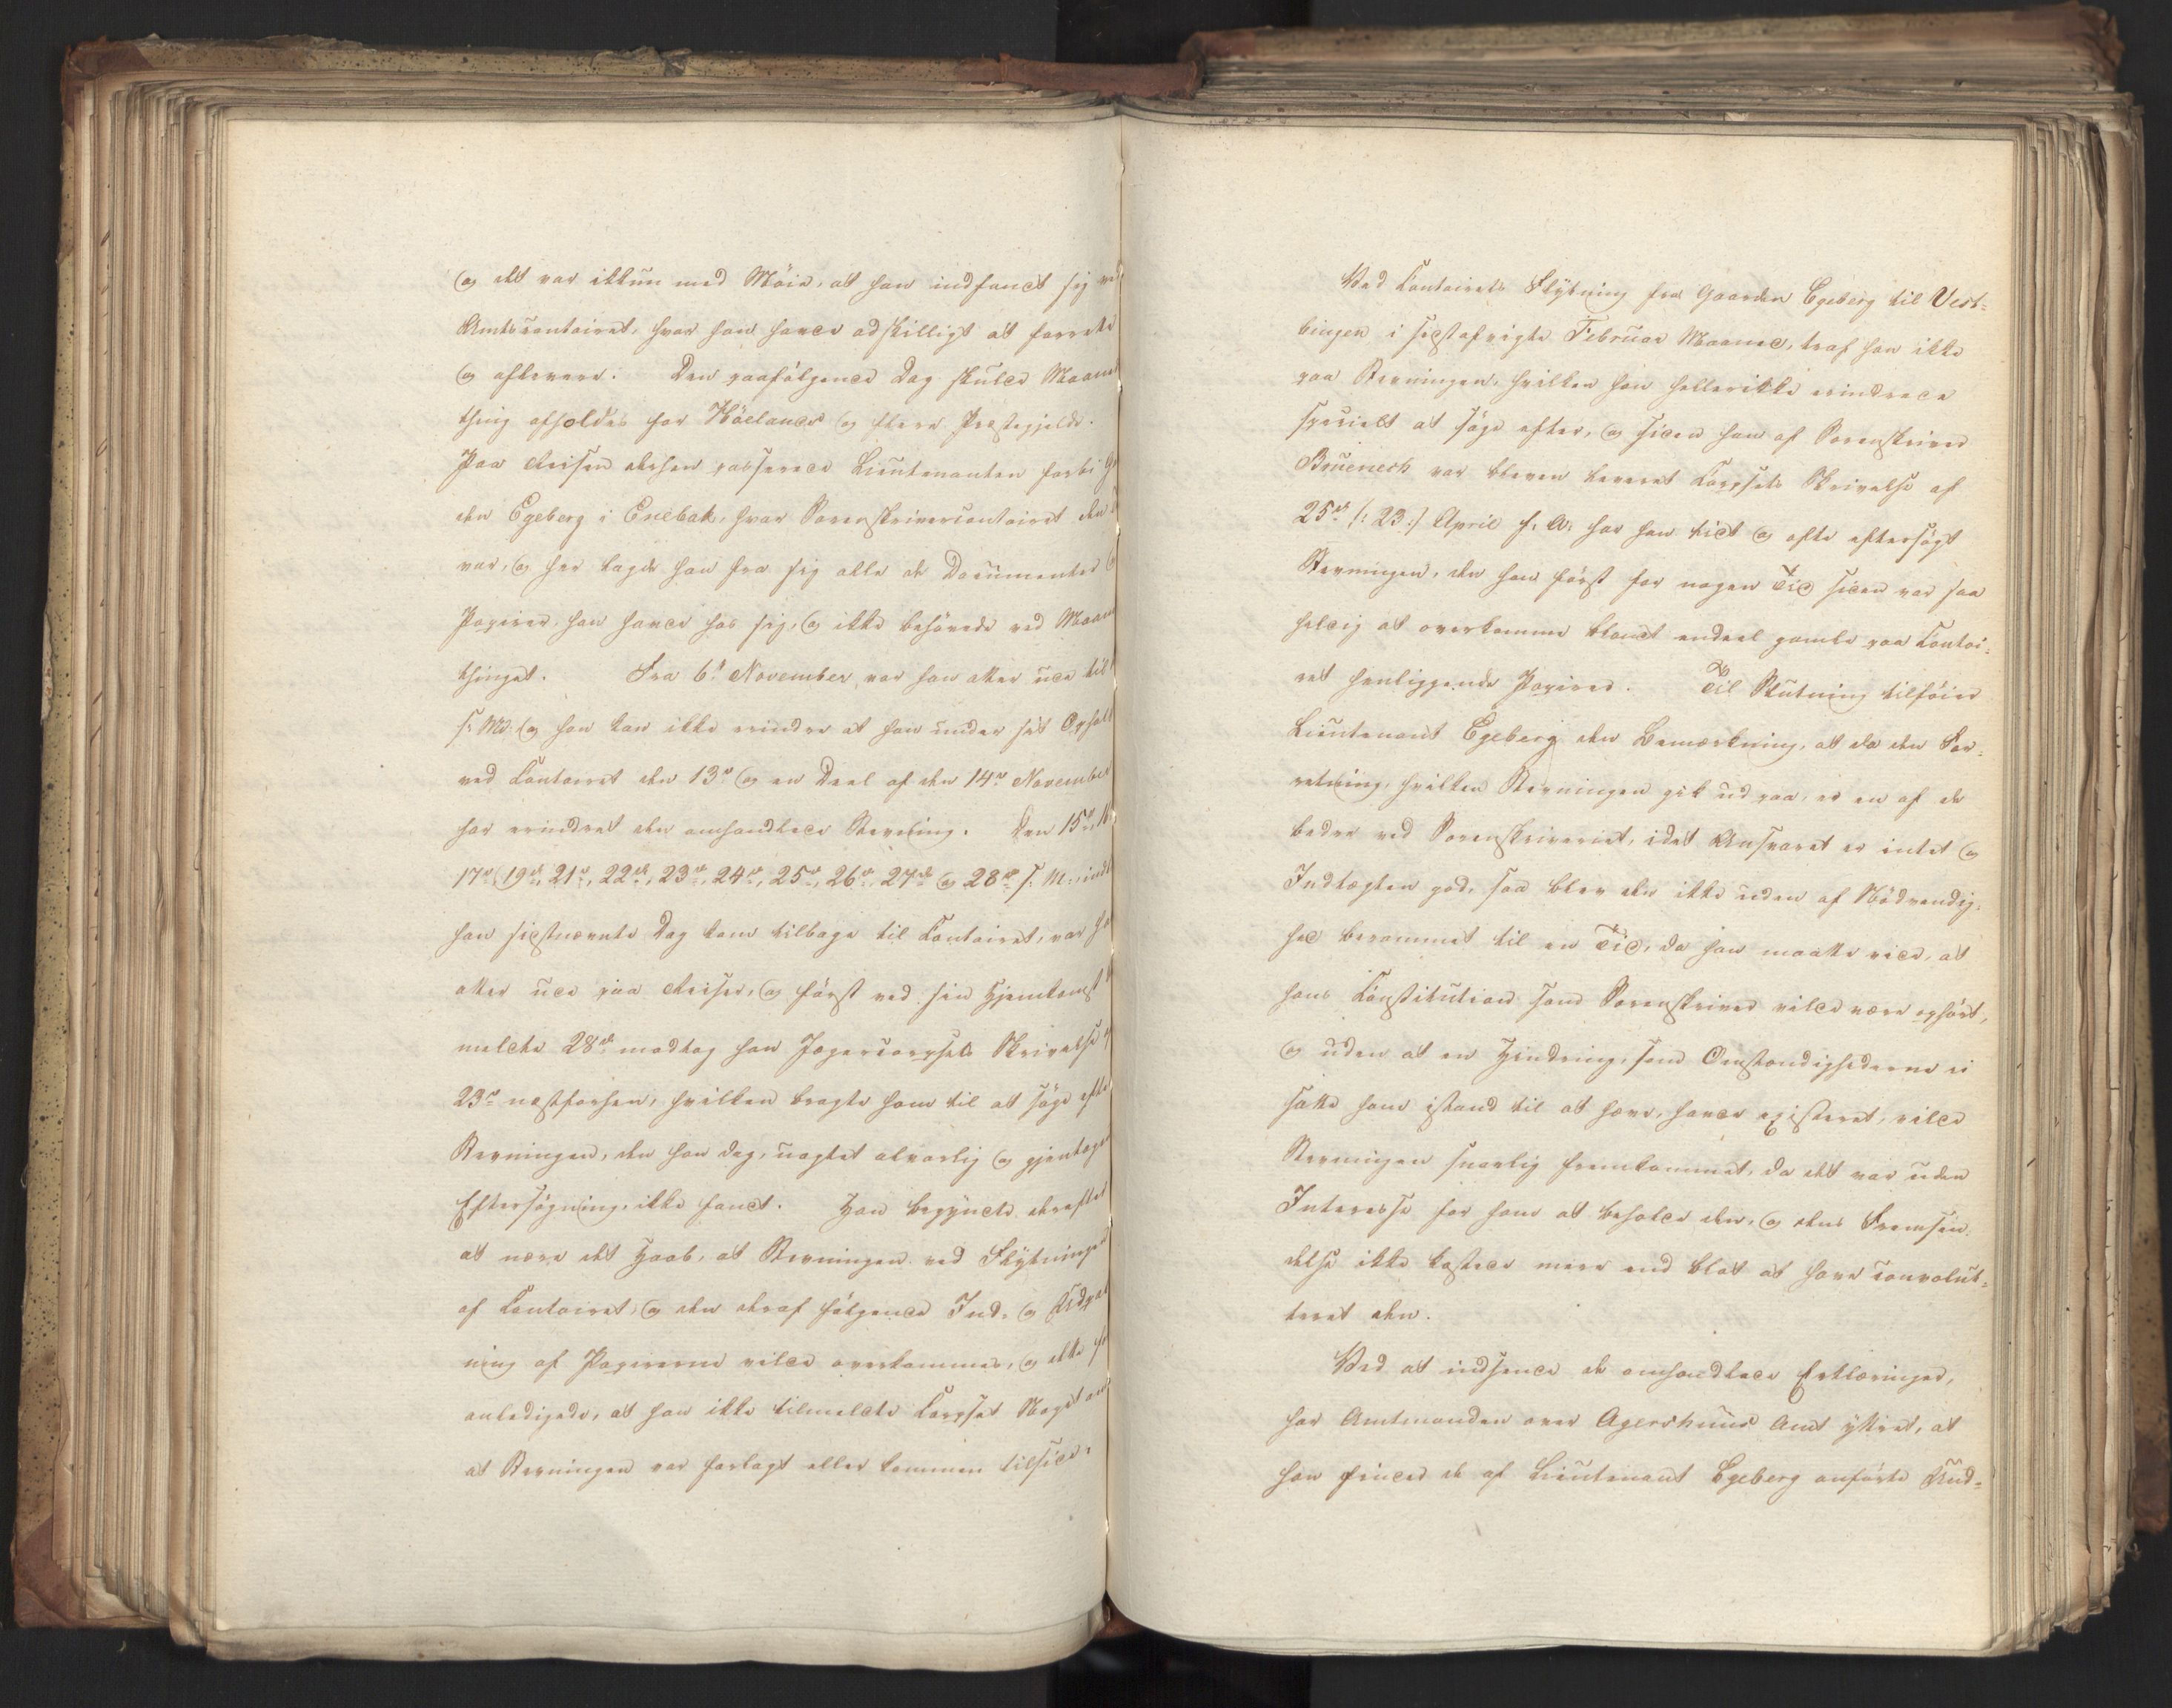 og det var ikkun med Möie, at han indfandt sig ved
Amtscontoiret, hvor han havde adskilligt at forrette
og aflevere. Den paafölgende Dag skulde Maaneds
thing afholdes for Höelands og flere Præstegjelde.
Paa Reisen derhen passerede Lieutenanten forbi
den Egeberg i Enebak, hvor Sorenskrivercontoiret den
var, og her lagde han fra sig alle de Documenter
Papirer, han havde hos sig, og ikke behövede ved
thinget. Fra 6te November var han atter ude til
s: M: og han kan ikke erindre at han under sit Ophold
ved Contoiret den 13de og en Deel af den 14de November
har erindret den omhandlede Stevning. Den 15de, 16
17de, 19de, 21de, 22de, 23de, 24de, 25de, 26de, 27de og 28de s: M:, indtil
han sidstnævnte Dag kom tilbage til Contoiret, var han
atter ude paa Reiser, og först ved sin Hjemkomst
meldte 28de modtog han Jægercorpsets Skrivelse af
23de næstforhen, hvilken bragte ham til at söge efter
Stevningen, den han dog, uagtet alvorlig og gjentagen
Eftersögning, ikke fandt. Han begyndte derefter
at nære det Haab, at Stevningen ved Flytningen
af Contoiret, og den deraf fölgende Ind- og Udpak
ning af Papirerne vilde overkommes, og dette
anledigede, at han ikke tilmeldte Corpset Noget om
at Stevningen var forlagt eller kommen tilside.
Ved Contoirets Flytning fra Gaarden Egeberg til Vest-
bingen i sidstafvigte Februar Maaned, traf han ikke
paa Stevningen, hvilken han heller ikke erindrede
specielt at söge efter, og siden ham af Sorenskriver
Bruenech var bleven leveret Corpsets Skrivelse af
25de (: 23:) April f: A: har han tidt og ofte eftersögt
Stevningen, den han först for nogen Tid siden var saa
heldig at overkomme blandt endeel gamle paa Contoi-
ret henliggende Papirer. Til Slutning tilföier
Lieutenant Egeberg den Bemærkning, at da den For-
retning, hvilken Stevningen gik ud paa, er en af de
bedre ved Sorenskriveriet, idet Ansvaret er intet og
Indtægten god, saa blev den ikke uden af Nödvendig-
hed berammet til en Tid, da han maatte vide, at
hans Constitution som Sorenskriver vilde være ophört,
og uden at en Hindring, som Omstændighederne ei
satte ham istand til at hæve, havde existeret, vilde
Stevningen snarlig fremkommet, da det var uden
Interesse for ham at beholde den, og dens Fremsen-
delse ikke kostede mere end blot at have convolut-
teret den.
Ved at indsende de omhandlede Erklæringer,
har Amtmanden over Agershuus Amt yttret, at
han finder de af Lieutenant Egeberg anförte Und-